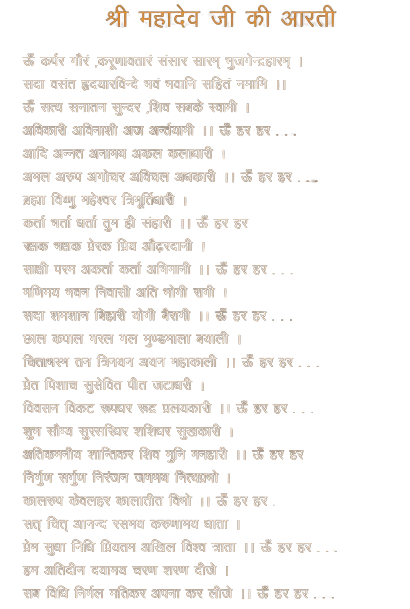 श्री महादेव जी की आरती
ॐ कर्पर गौरं ,करूणावतारं संसार सारम् भुजगेन्द्रहारम् ।
सदा वसंत ह्रदयारविन्दे भवं भवानि सहितं नमामि ।।
ॐ सत्य सनातन सुन्दर ,शिव सबके स्वामी ।
अविकारी अविनाशी अज अर्न्तयामी ।। ॐ हर हर . . .
आदि अन्नत अनामय अकल कलाधारी ।
अमल अरुप अगोचर अविचल अधकारी ।। ॐ हर हर . ...
ब्रह्मा विष्णु महेश्वर त्रिमूर्तिधारी ।
कर्ता भर्ता धर्ता तुम ही संहारी ।। ॐ हर हर
रक्षक भक्षक प्रेरक प्रिय औढ़रदानी ।
साक्षी परम अकर्ता कर्ता अभिमानी ।। ॐ हर हर . . .
मणिमय भवन निवासी अति भोगी रागी ।
सदा शमशान बिहारी योगी बैरागी ।। ॐ हर हर . . .
छाल कपाल गरल गल मुण्डमाला ब्याली ।
चिताभस्म तन त्रिनयन अयन महाकाली ।। ॐ हर हर . . .
प्रेत पिशाच सुसेवित पीत जटाधारी ।
विवसन विकट रूपधर रूद्र प्रलयकारी ।। ॐ हर हर . . .
शुभ्र सौम्य सुरसरिधर शशिधर सुखकारी ।
अतिकमनीय शान्तिकर शिव मुनि मनहारी ।। ॐ हर हर
निर्गुण सर्गुण निरंजन जगमय नित्यप्रभो ।
कालरूप केवलहर कालातीत विभो ।। ॐ हर हर .
सत् चित् आनन्द रसमय करुणामय धाता ।
प्रेम सुधा निधि प्रियतम अखिल विश्व त्राता ।। ॐ हर हर . . .
हम अतिदीन दयामय चरण शरण दीजे ।
सब विधि निर्मल मतिकर अपना कर लीजे ।। ॐ हर हर . . .